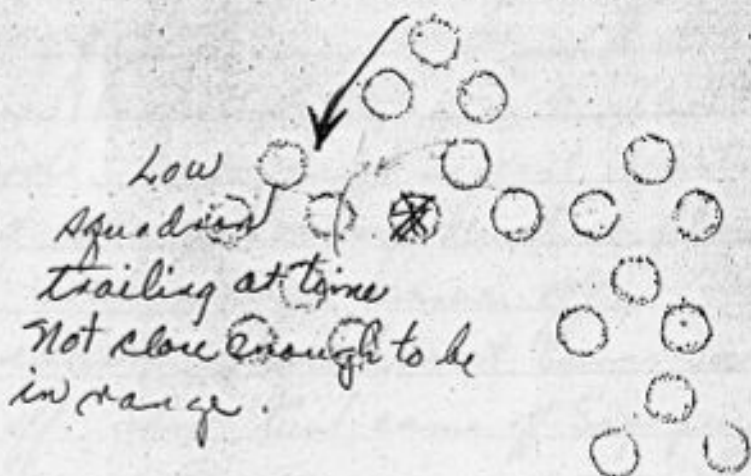 Low
squadron
trailing at time
Not close enough to be
in range.